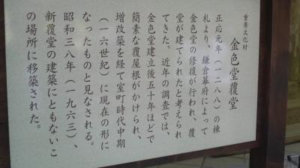 重要文化財
金色堂覆堂
正応元年(一二八八)の棟
札より、鎌倉幕府によって
金色堂の修復が行われ、覆
堂が建てられたと考えられ
てきた。近年の調査では、
金色堂建立後五十年ほどで
簡素な覆屋根がかけられ、
増改築を経て室町時代中期
(一六世紀)に現在の形に
なったものと見なされる。
昭和三八年(一九六三)、
新覆堂の建築にともないこ
の場所に移築された。